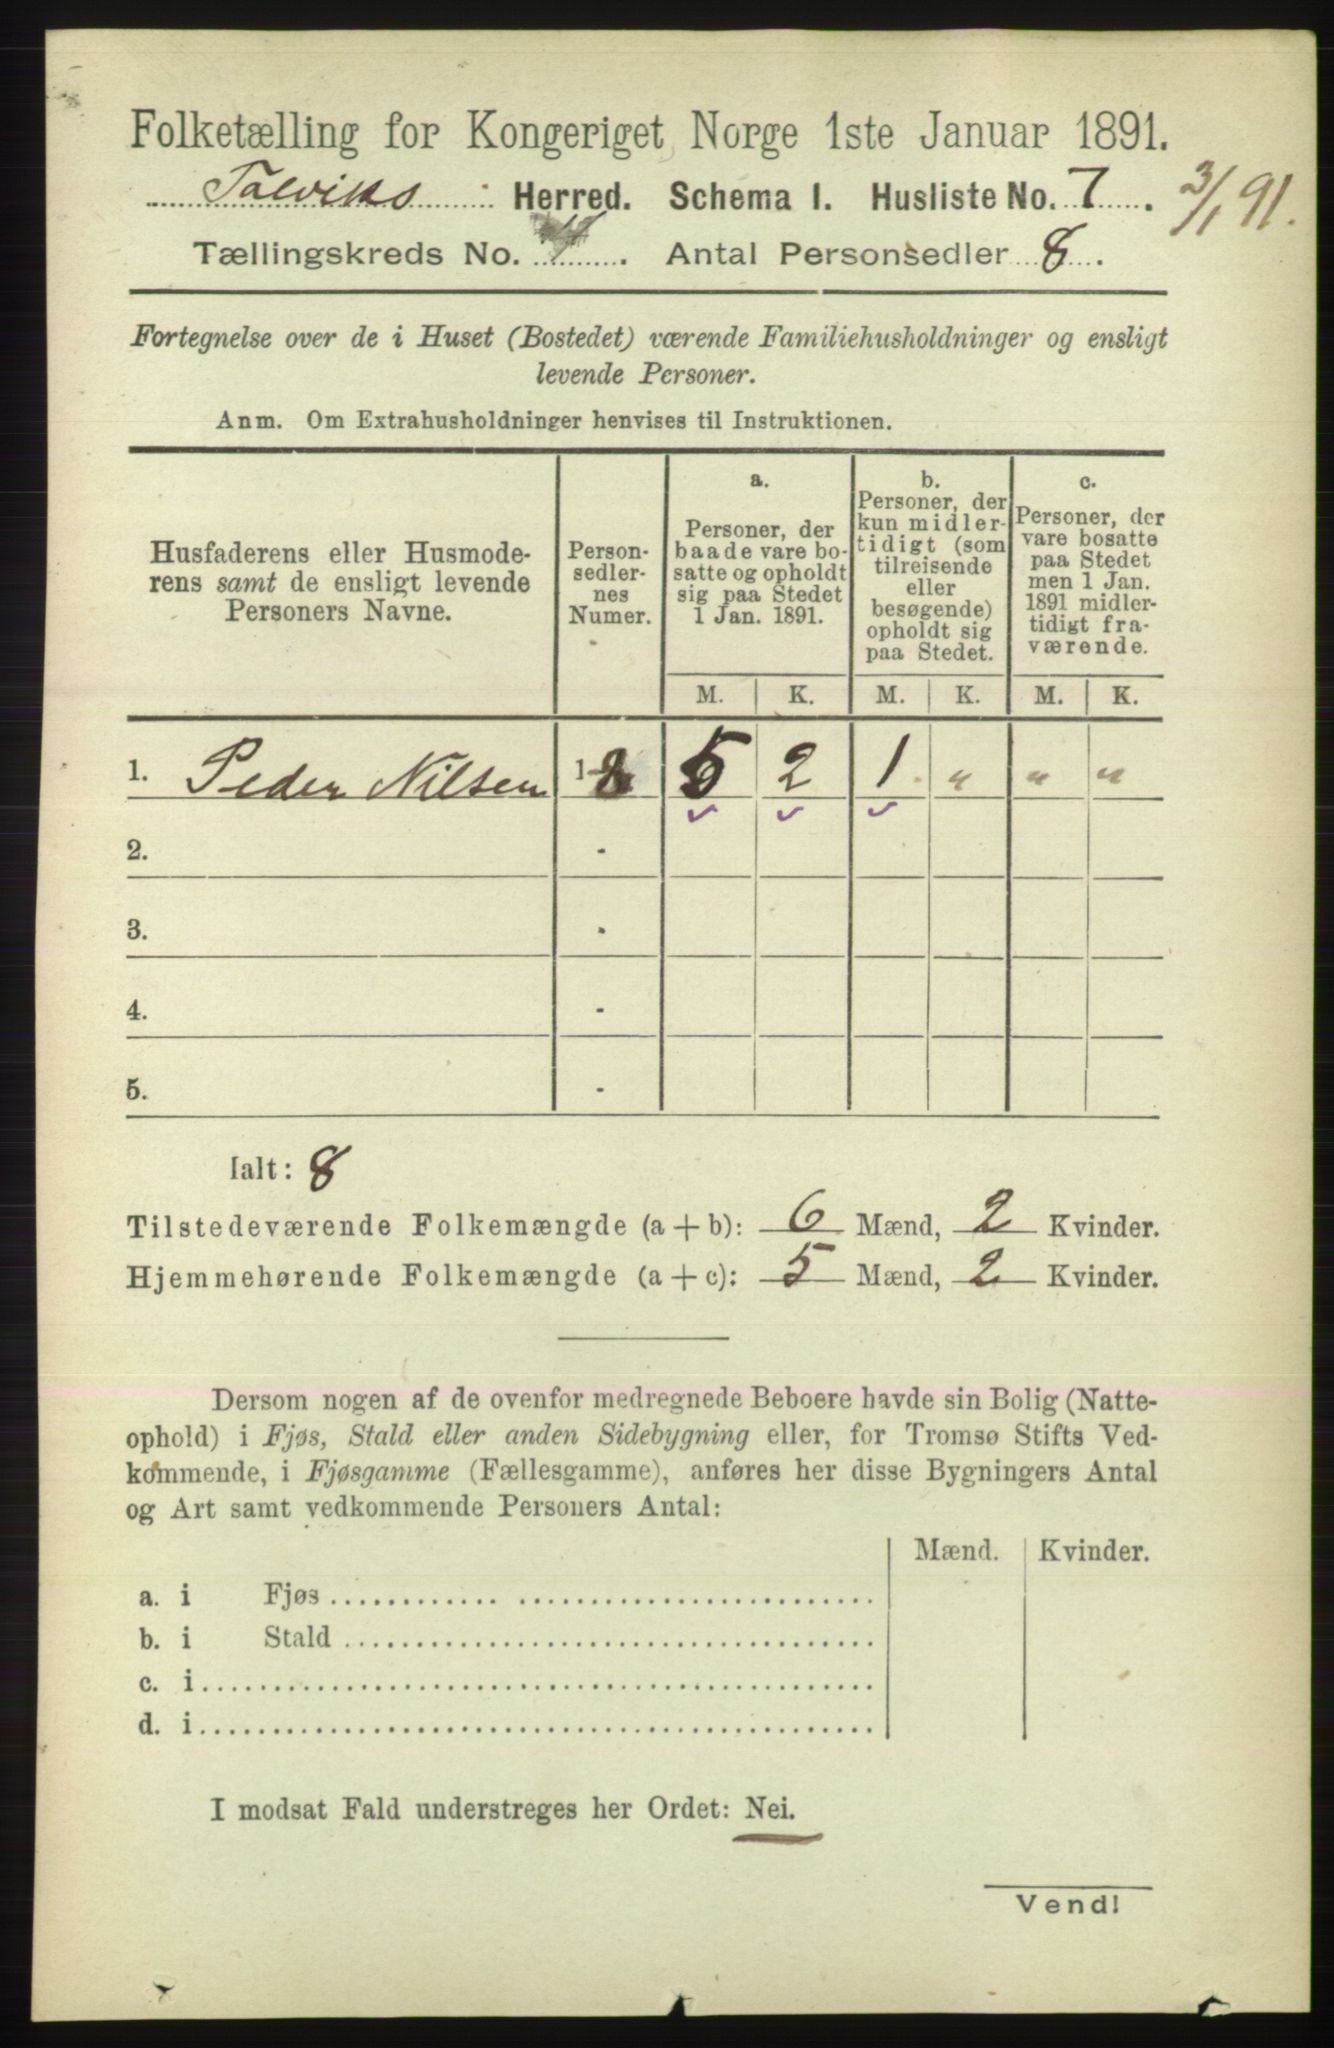 Folketælling for Kongeriget Norge 1ste Januar 1891.
Talviks Herred. Schema I. Husliste No. 7.
3/1 91.
Tællingskreds No. 4. Antal Personsedler 8.
Fortegnelse over de i Huset (Bostedet) værende Familiehusholdninger og ensligt
levende Personer.
Anm. Om Extrahusholdninger henvises til Instruktionen.
Husfaderens eller Husmode-
rens samt de ensligt levende
Personers Navne.
Person-
sedler-
nes
Numer.
a.
Personer, der
baade vare bo-
satte og opholdt
sig paa Stedet
1 Jan. 1891.
b.
Personer, der
kun midler-
tidigt (som
tilreisende
eller
besøgende)
opholdt sig
paa Stedet.
c.
Personer, der
vare bosatte
paa Stedet
men 1 Jan.
1891 midler-
tidigt fra-
værende.
M. K. M. K. M. K.
1. Peder Nilsen 1-8 5 2 1 " " "
2. -
3. -
4. -
5. -
Ialt: 8
Tilstedeværende Folkemængde (a + b): 6 Mænd, 2 Kvinder.
Hjemmehørende Folkemængde (a + c): 5 Mænd, 2 Kvinder.
Dersom nogen af de ovenfor medregnede Beboere havde sin Bolig (Natte-
ophold) i Fjøs, Stald eller anden Sidebygning eller, for Tromsø Stifts Ved-
kommende, i Fjøsgamme (Fællesgamme), anføres her disse Bygningers Antal
og Art samt vedkommende Personers Antal:
Mænd. Kvinder.
a. i Fjøs
b. i Stald
c. i
d. i
I modsat Fald understreges her Ordet: Nei.
Vend!